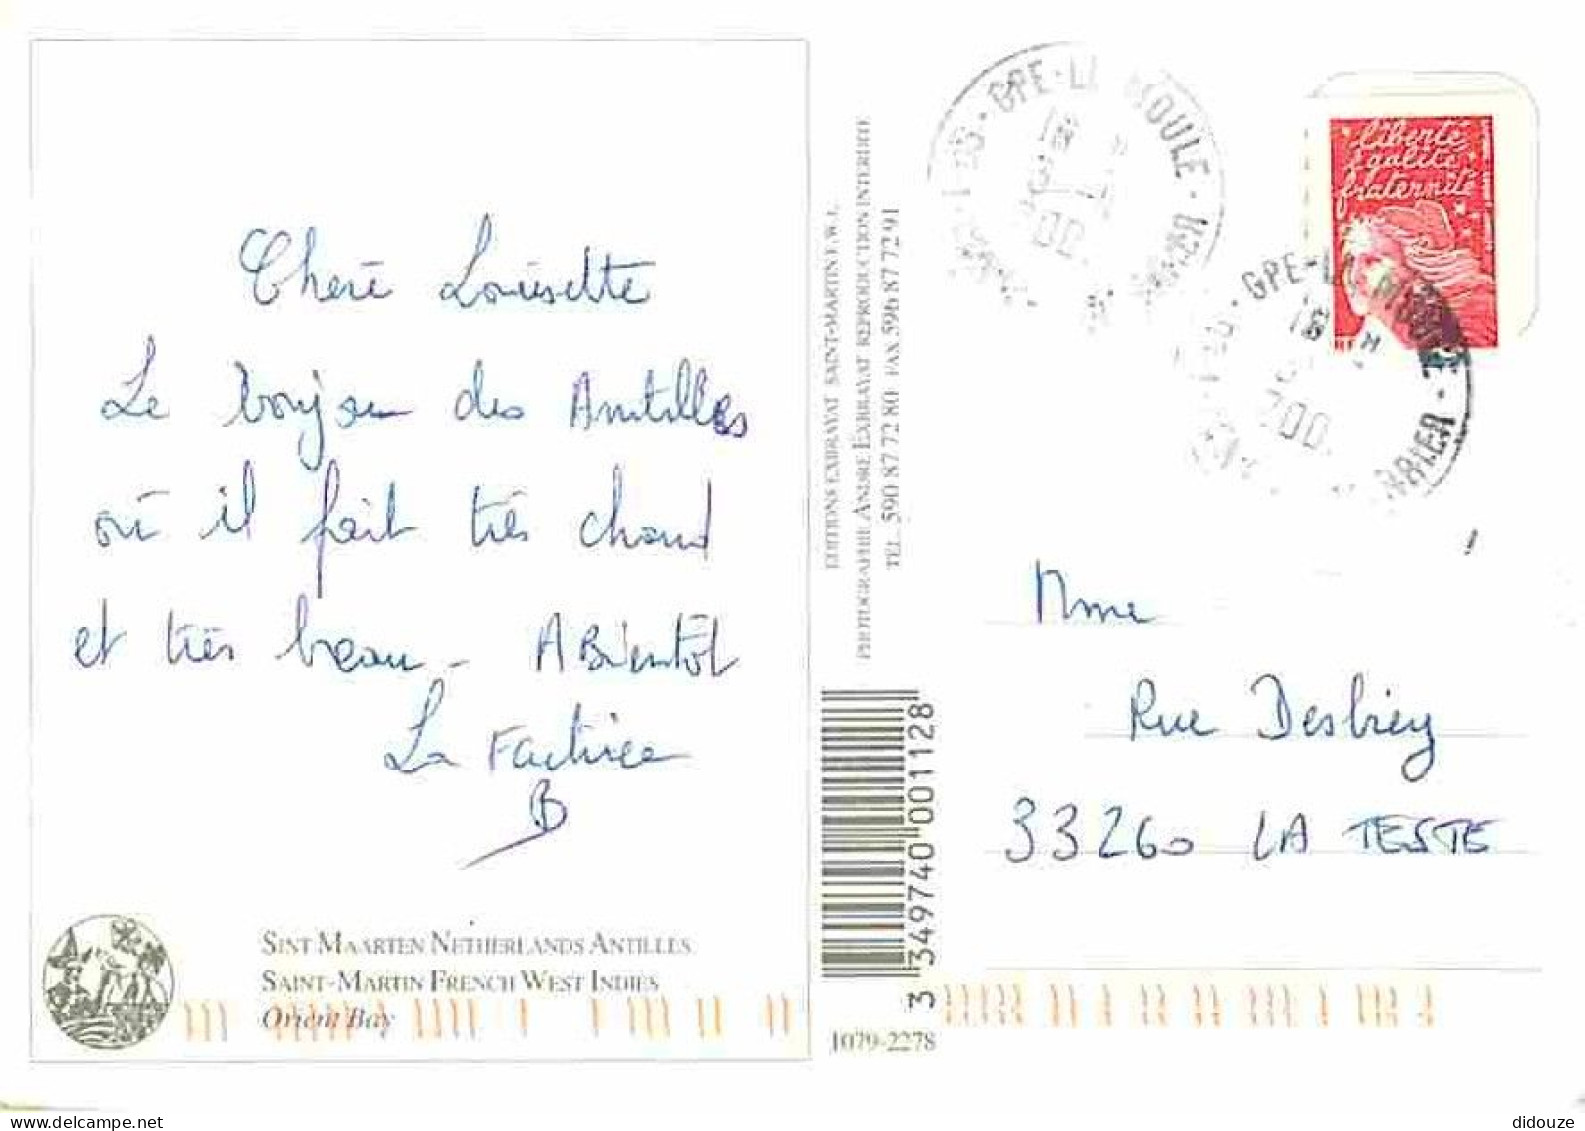 Chère Louisette
Le bonjour des Antilles
où il fait très chaud
et très beau - A Bientôt
La Factrice
B
SINT MAARTEN NETHERLANDS ANTILLES
SAINT-MARTIN FRENCH WEST INDIES
Orient Bay
EDITIONS EXBRAYAT SAINT-MARTIN F.W.I.
PHOTOGRAPHIE ANDRÉ EXBRAYAT REPRODUCTION INTERDITE
TEL. 590 87 72 80 FAX 596 87 72 91
3 349740 001128
1079-2278
GPE-LE MOULE
liberté
égalité
fraternité
GPE-LE MOULE
Mme
Rue Desbiey
33260 LA TESTE
didouze